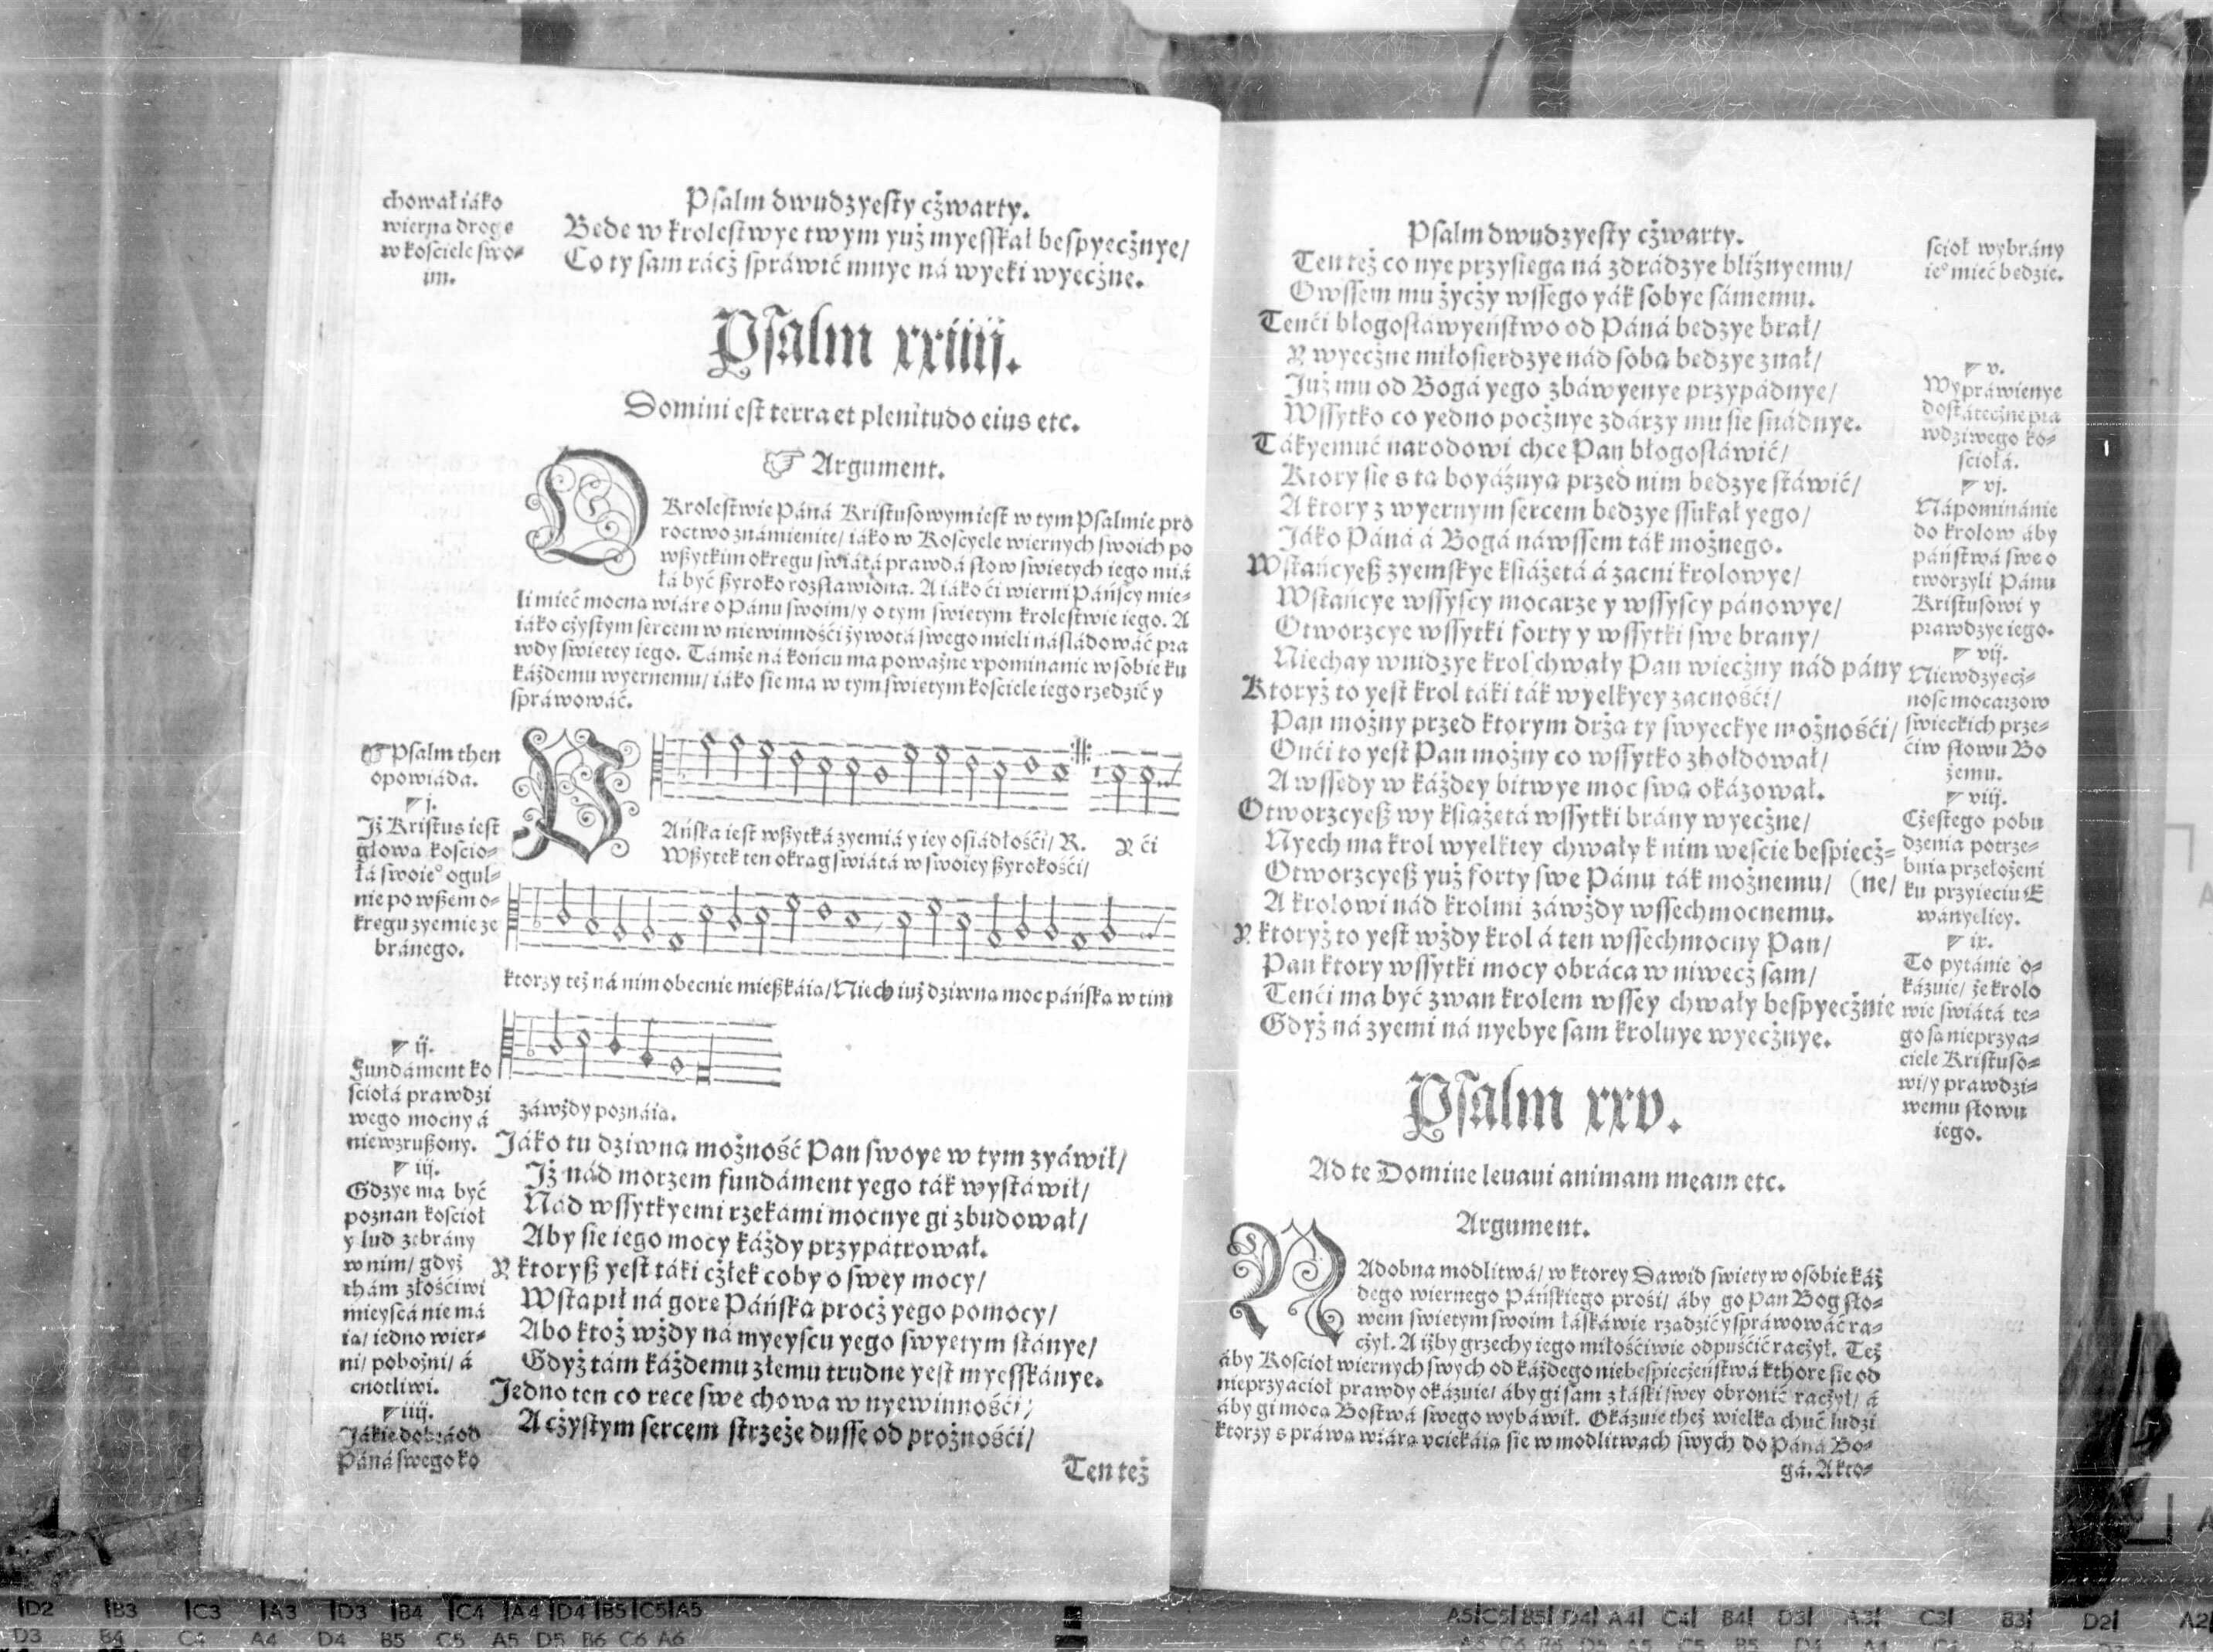 Psalm dwudzyesty cżwarty.
chował iáko
wierna droge
w kosciele swo-
im.
Bede w krolestwye twym yuż myesskał bespyecżnye/
Co ty sam rácż spráwić mnye ná wyeki wyecżne.
Psalm xxiiij.
Domini est terra et plenitudo eius etc.
☞ Argument.
O Krolestwie Páná Kristusowym iest w tym Psalmie pro
roctwo známienite/ iáko w Koscyele wiernych swoich po
wßytkim okregu swiátá prawdá słow swietych iego miá
łá być ßyroko rozsławiona. A iáko ći wierni Páńscy mie-
li mieć mocna wiáre o Pánu swoim/ y o tym swietym krolestwie iego. A
iáko cżystym sercem w niewinnośći żywotá swego mieli násládowáć pra
wdy swietey iego. Támże ná końcu ma poważne vpominanie w sobie ku
káżdemu wyernemu/ iáko sie ma w tym swietym kosciele iego rzedzić y
spráwowáć.
☞ Psalm then
opowiáda.
j.
Jż Kristus iest
głowa koscio-
łá swoie° ogul-
nie po wßem o-
kregu zyemie ze
bránego.
PAńska iest wßytká zyemiá y iey osiádłośći/ R. Y ći
Wßytek ten okrag swiátá w swoiey ßyrokośći/
ktorzy też ná nim obecnie mießkáia/ Niech iuż dziwna moc páńska w tim
záwżdy poznáia.
ij.
Fundáment ko
sciołá prawdzi
wego mocny á
niewzrußony.
iij.
Gdzye ma być
poznan kościoł
y lud zebrány
w nim/ gdyż
thám złośćiwi
mieyscá nie má
ia/ iedno wier-
ni/ pobożni/ á
cnotliwi.
iiij.
Jákie dobrá od
Páná swego ko
Jáko tu dziwna możność Pan swoye w tym zyáwił/
Jż nád morzem fundáment yego ták wystáwił/
Nád wssytkyemi rzekámi mocnye gi zbudował/
Aby sie iego mocy káżdy przypátrował.
Y ktoryß yest táki cżłek coby o swey mocy/
Wstąpił ná gore Páńska procż yego pomocy/
Abo ktoż wżdy ná myeyscu yego swyetym stánye/
Gdyż tám káżdemu złemu trudne yest myesskánye.
Jedno ten co rece swe chowa w nyewinnośći/
A cżystym sercem strzeże dusse od prożnośći/
Ten też
Psalm dwudzyesty cżwarty.
Ten też co nye przysiega ná zdrádzye bliźnyemu/
Owssem mu życży wssego yák sobye sámemu.
Tenći błogosłáwyeństwo od Páná bedzye brał/
Y wyecżne miłosierdzye nád soba bedzye znał/
Już mu od Bogá yego zbáwyenye przypádnye/
Wssytko co yedno pocżnye zdárzy mu sie snádnye.
Tákyemuć narodowi chce Pan błogosłáwić/
Ktory sie s ta boyáźnya przed nim bedzye stáwić/
A ktory z wyernym sercem bedzye ssukał yego/
Jáko Páná á Bogá náwssem ták możnego.
Wstańcyeß zyemskye ksiáżetá á zacni krolowye/
Wstańcye wssyscy mocarze y wssyscy pánowye/
Otworzcye wssytki forty y wssytki swe brany/
Niechay wnidzye krol chwały Pan wiecżny nád pány
Ktoryż to yest krol táki ták wyelkyey zacnośći/
Pan możny przed ktorym drża ty swyeckye możnośći/
Onći to yest Pan możny co wssytko zhołdował/
A wssedy w káżdey bitwye moc swa okázował.
Otworzcyeß wy ksiażetá wssytki brány wyecżne/
Nyech ma krol wyelkiey chwały k nim weście bespiecż-
Otworzcyeß yuż forty swe Pánu ták możnemu/ (ne/
A krolowi nád krolmi záwżdy wssechmocnemu.
Y ktoryż to yest wżdy krol á ten wssechmocny Pan/
Pan ktory wssytki mocy obráca w niwecż sam/
Tenći ma być zwan krolem wssey chwały bespyecżnie
Gdyż ná zyemi ná nyebye sam kroluye wyecżnye.
scioł wybrány
ie° mieć bedzie.
v.
Wypráwienye
dostátecżne pra
wdziwego ko-
sciołá.
vj.
Nápominánie
do krolow áby
páństwá swe o
tworzyli Pánu
Kristusowi y
prawdzye iego.
vij.
Niewdzyecż-
nosc mocarzow
swieckich prze-
ćiw słowu Bo
żemu.
viij.
Cżestego pobu
dzenia potrze-
buia przełożeni
ku przyieciu E
wányeliey.
ix.
To pytánie o-
kázuie/ że krolo
wie swiátá te-
go sa nieprzya-
ciele Kristuso-
wi/ y prawdzi-
wemu słowu
iego.
Psalm xxv.
Ad te Domine leuaui animam meam etc.
Argument.
NAdobna modlitwá/ w ktorey Dawid swiety w osobie káż
dego wiernego Páńskiego prosi/ áby go Pan Bog sło-
wem swietym swoim łáskáwie rzadzić y spráwowáć ra-
cżył. A iżby grzechy iego miłośćiwie odpuśćić racżył. Też
áby Kościoł wiernych swych od káżdego niebespiecżeństwá kthore sie od
nieprzyacioł prawdy okázuie/ áby gi sam z łáski swey obronić racżył/ á
áby gi moca Bostwá swego wybáwił. Okázuie też wielka chuć ludzi
ktorzy s práwa wiára vciekáia sie w modlitwach swych do Páná Bo-
gá. A kto-